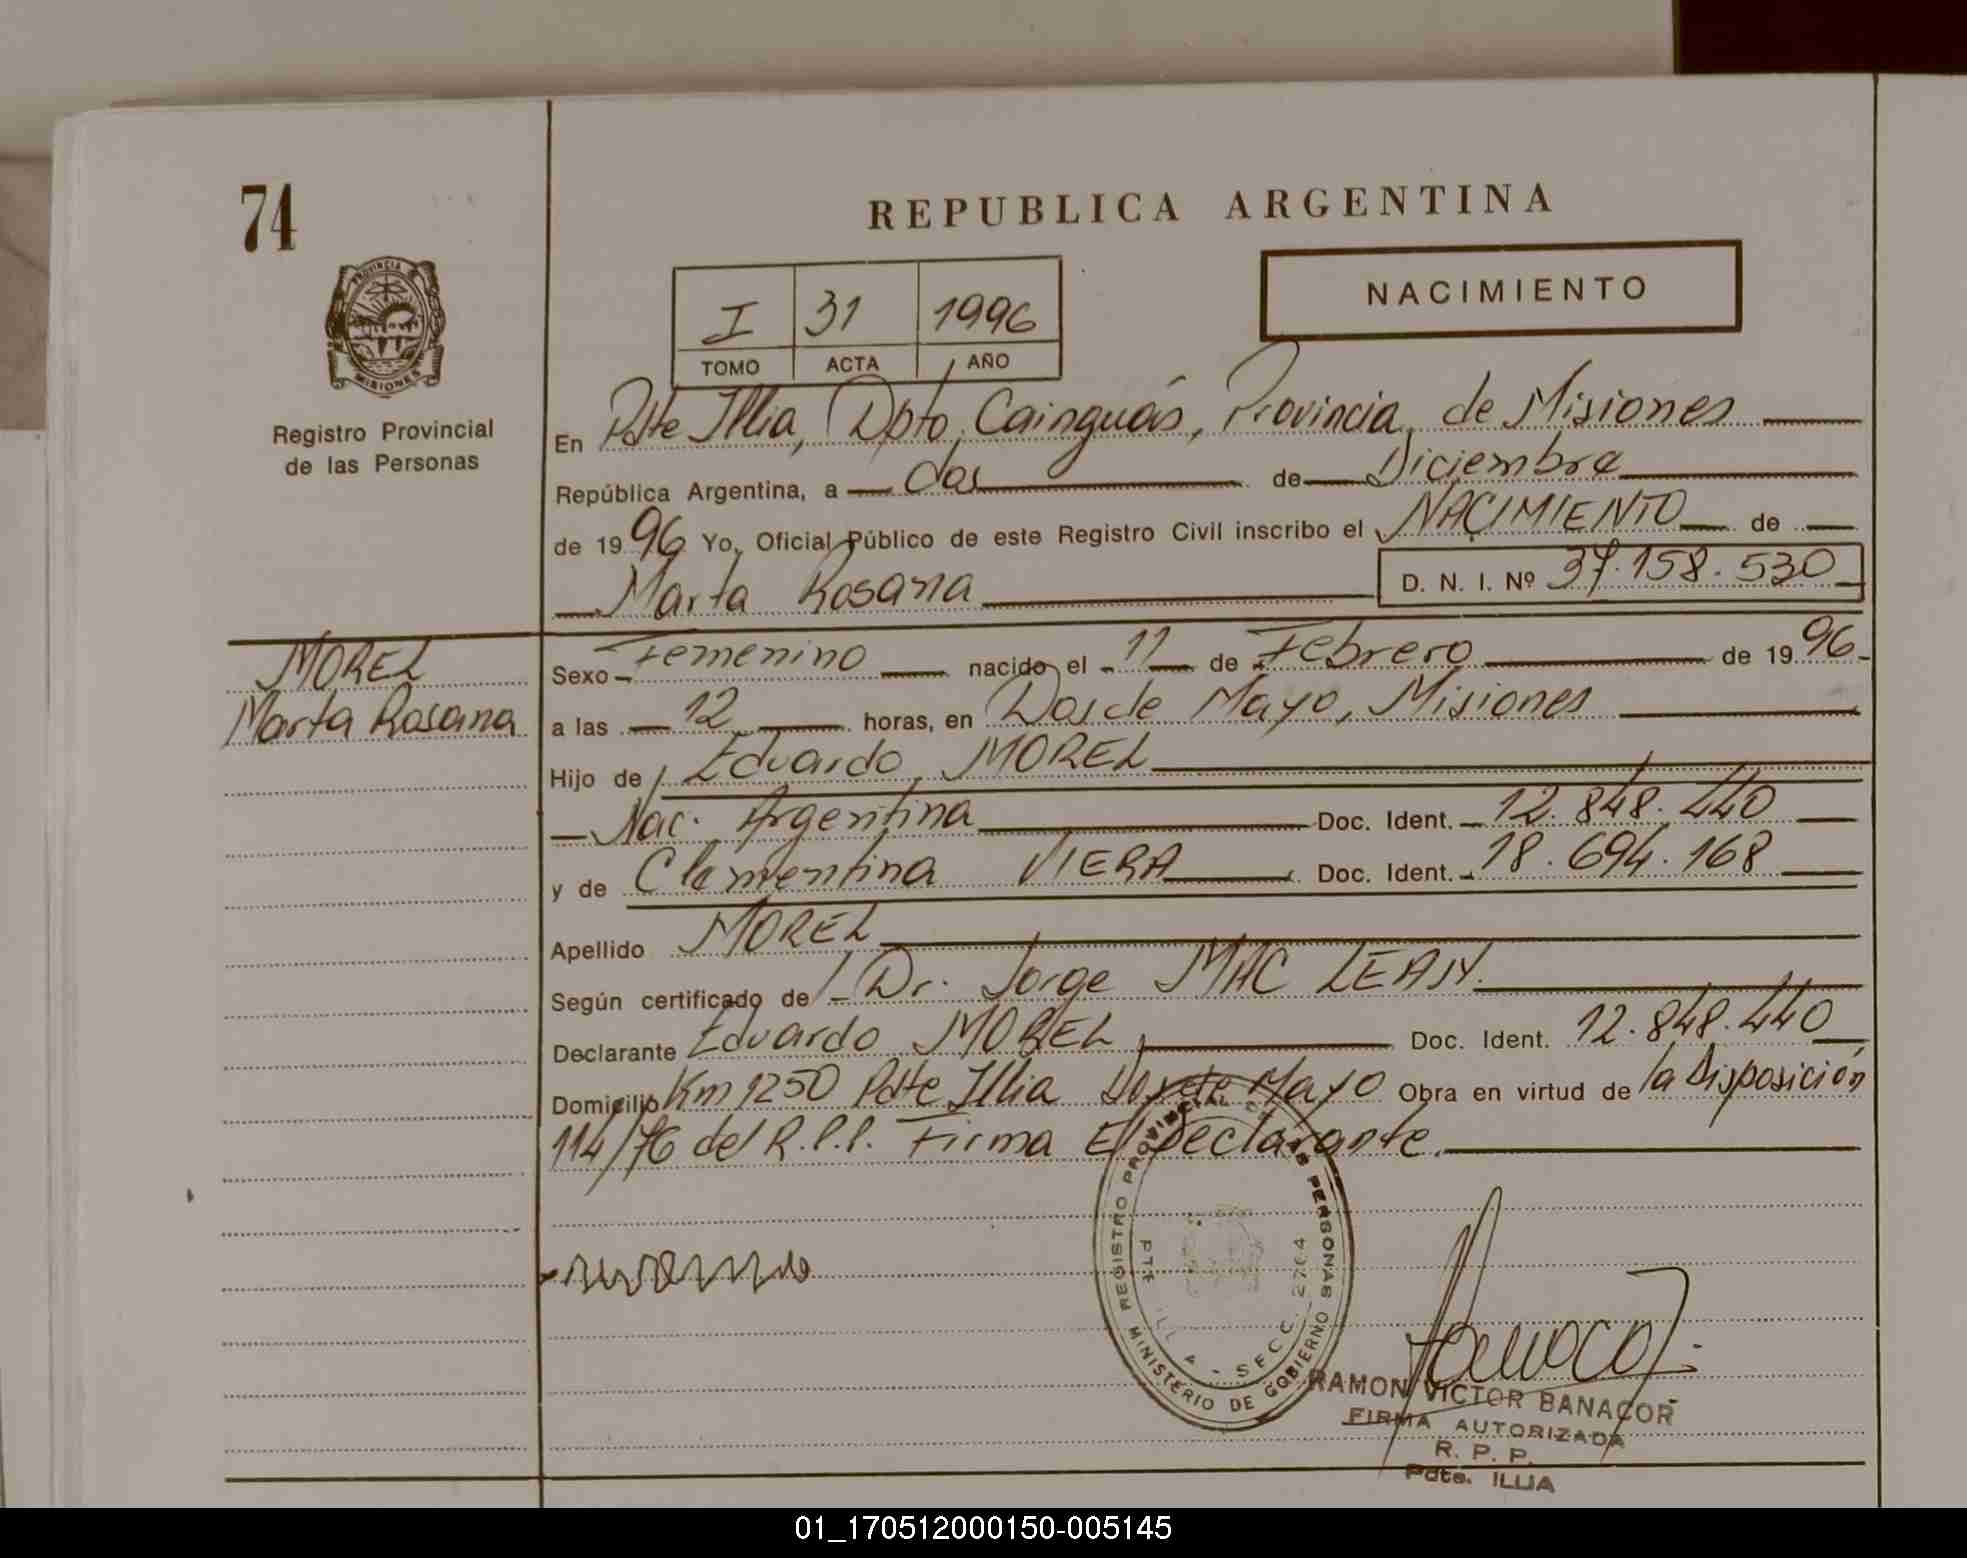 74
REPUBLICA ARGENTINA
PROVINCIA DE
MISIONES
NACIMIENTO
I 31 1996
TOMO ACTA AÑO
Registro Provincial
de las Personas
En Pdte Illia, Dpto. Cainguás, Provincia de Misiones
República Argentina, a dos de Diciembre
de 1996 Yo, Oficial Público de este Registro Civil inscribo el NACIMIENTO de
Marta Rosana D. N. I. Nº 37.158.530
MOREL
Marta Rosana
Sexo Femenino nacido el 11 de Febrero de 1996
a las 12 horas, en Dos de Mayo, Misiones
Hijo de Eduardo MOREL
Nac. Argentina Doc. Ident. 12.848.440
y de Clementina VIERA Doc. Ident. 18.694.168
Apellido MOREL
Según certificado de Dr. Jorge MAC LEAN.
Declarante Eduardo MOREL Doc. Ident. 12.848.440
Domicilio Km 1250 Pdte Illia Dos de Mayo Obra en virtud de la Disposición
114/76 del R.P.P. Firma El Declarante.
REGISTRO PROVINCIAL DE LAS PERSONAS
MINISTERIO DE GOBIERNO
PTE ILLIA - SECC. 2764
RAMON VICTOR BANACOR
FIRMA AUTORIZADA
R. P. P.
Pdte. ILLIA
01_170512000150-005145